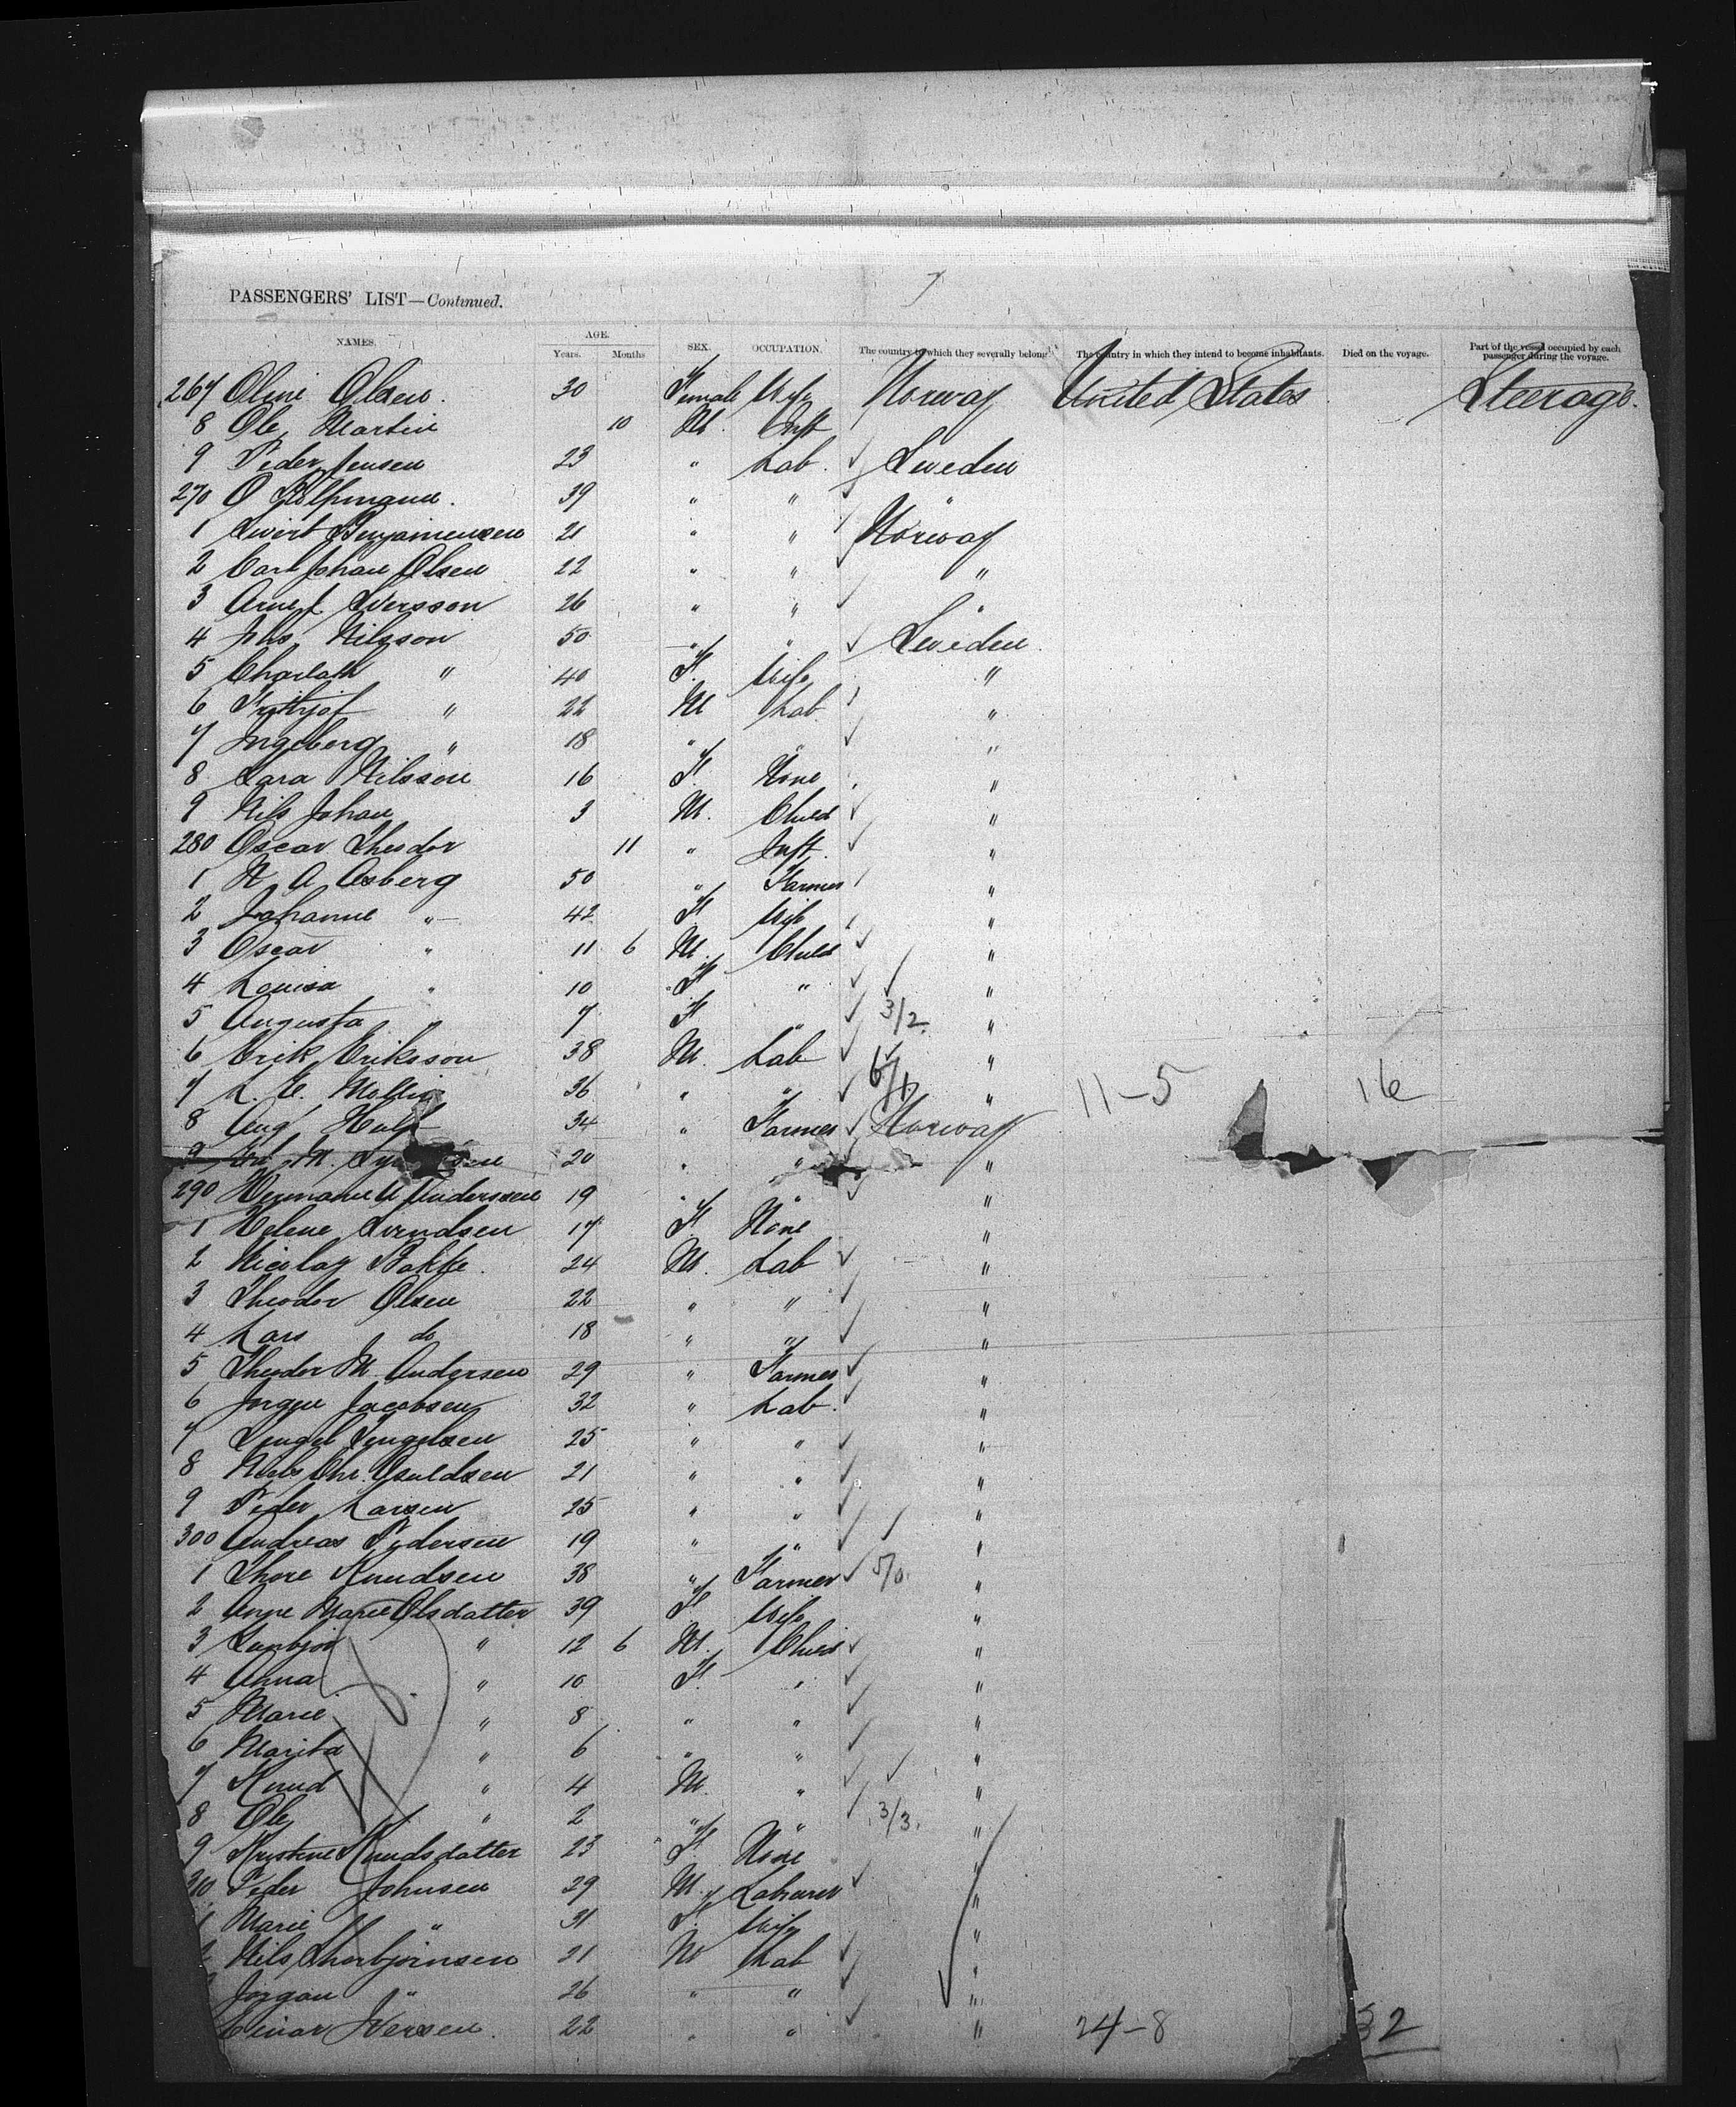 PASSENGERS' LIST—Continued.
NAMES. AGE. Years. Months SEX. OCCUPATION. The country to which they severally belong. The country in which they intend to become inhabitants. Died on the voyage. Part of the vessel occupied by each passenger during the voyage.
267 Oline Olsen. 30 Female Wife Norway United States Steerage.
8 Ole Martin 10 M. Inft
9 Peder Jensen 23 " Lab. Sweden
270 O 39 " " "
1 Sivert 21 " " Norway
2 Carl Johan Olsen 22 " " "
3 Arne J. Iversson 26 " " "
4 Johs Nilsson 50 " " Sweden.
5 " 40 F. Wife "
6 Frithjof " 22 M Lab "
7 Ingeborg " 18 " " "
8 Lara Nilsson 16 F. None "
9 Nils Johan 3 M. Child "
280 Oscar Theodor 11 " Inft. "
1 N A Asberg 50 " Farmer "
2 Johanne " 42 F Wife "
3 Oscar " 11 6 M. Child "
4 Louisa " 10 F " "
5 Augusta " 7 F " 3/2. "
6 Erik Eriksson 38 M. Lab "
7 L. E. 36 " " 6/1 " 11-5 16
8 Aug. 34 " Farmer Norway
9 M. 20 " " "
290 Andersen 19 " " "
1 Helene Svendsen 17 F None "
2 Nicolay 24 M. Lab "
3 Theodor Olsen 22 " " "
4 Lars do 18 " " "
5 Theodor M Andersen 29 " Farmer "
6 Jorgen Jacobsen 32 " Lab. "
7 25 " " "
8 Chr. 21 " " "
9 Peder Larsen 25 " " "
300 Andreas Pedersen 19 " " "
1 Thore Knudsen 38 " Farmer 5/0. "
2 Anne Marie Olsdatter 39 F Wife "
3 " 12 6 M. Child "
4 Anna " 10 F. " "
5 Marie " 8 " " "
6 Marita " 6 " " "
7 Knud " 4 M. " "
8 Ole " 2 " " 3/3. "
9 Kristine Knudsdatter 23 F. None "
310 Peder Johnsen 29 M. Laborer "
1 Marie " 31 F. Wife "
2 Nils Thorbjornsen 21 M Lab "
Jorgan " 26 " " "
Einar Iversen. 22 " " " 24-8 32